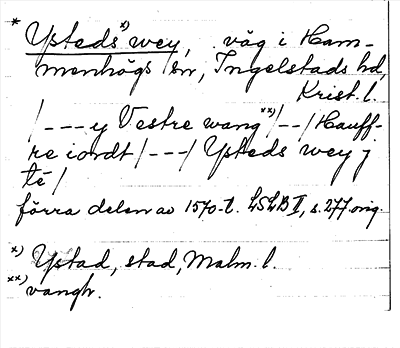 * Ysteds x) wey, väg i Ham-
menhögs sn, Ingelstads hd,
Krist. l.
/---y Vestre wang xx)/--/Hauff-
re iordt/---/Ysteds wey j
té/
förra delen av 1570-t. LSLB II, s. 277. orig.
x) Ystad, stad, Malm. l.
xx) vangh.